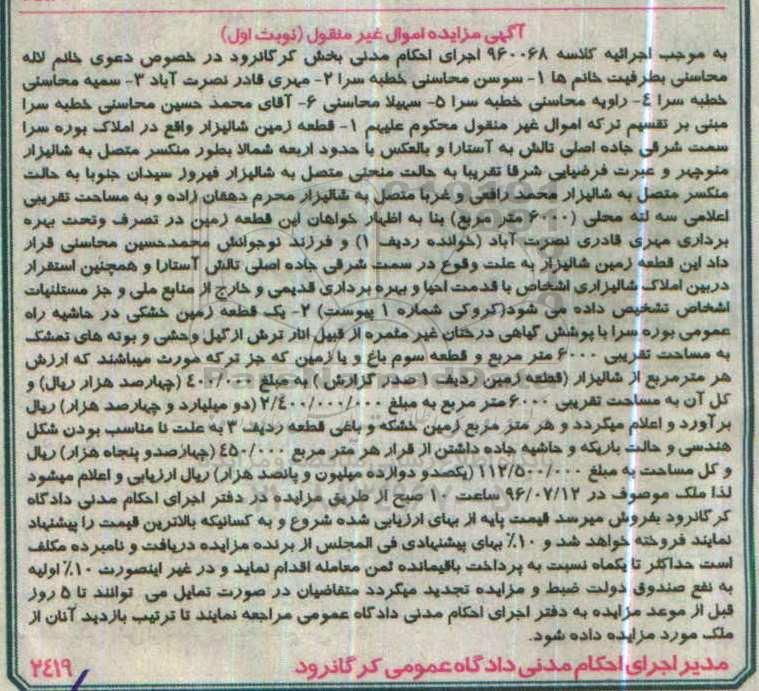 آگهی مزایده اموال غیر منقول (نوبت اول)
به موجب اجرائیه کلاسه ۹۶۰۰۶۸ اجرای احکام مدنی بخش کرگانرود در خصوص دعوی خانم لاله
محاسنی بطرفیت خانم ها ۱- سوسن محاسنی خطبه سرا ۲- مهری قادر نصرت آباد ۳- سمیه محاسنی
خطبه سرا ٤- راویه محاسنی خطبه سرا ۵- سهیلا محاسنی ۶- آقای محمد حسین محاسنی خطبه سرا
مبنی بر تقسیم ترکه اموال غیر منقول محکوم علیهم ۱- قطعه زمین شالیزار واقع در املاک بوره سرا
سمت شرقی جاده اصلی تالش به آستارا و بالعکس با حدود اربعه شمالا بطور منکسر متصل به شالیزار
منوچهر و عبرت فرضیایی شرقا تقریبا به حالت منحنی متصل به شالیزار فیروز سیدان جنوبا به حالت
منکسر متصل به شالیزار محمد رافعی و غربا متصل به شالیزار محرم دهقان زاده و به مساحت تقریبی
اعلامی سه لنه محلی (۶۰۰۰ متر مربع) بنا به اظهار خواهان این قطعه زمین در تصرف وتحت بهره
برداری مهری قادری نصرت آباد (خوانده ردیف ۱) و فرزند نوجوانش محمدحسین محاسنی قرار
داد این قطعه زمین شالیزار به علت وقوع در سمت شرقی جاده اصلی تالش آستارا و همچنین استقرار
دربین املاک شالیزاری اشخاص با قدمت احیا و بهره برداری قدیمی و خارج از منابع ملی و جز مستثنیات
اشخاص تشخیص داده می شود(کروکی شماره ۱ پیوست) ۲- یک قطعه زمین خشکی در حاشیه راه
عمومی بوره سرا با پوشش گیاهی درختان غیر مثمره از قبیل انار ترش ازگیل وحشی و بوته های تمشک
به مساحت تقریبی ۶۰۰۰ متر مربع و قطعه سوم باغ و یا زمین که جز ترکه مورث میباشند که ارزش
هر مترمربع از شالیزار (قطعه زمین ردیف ۱ صدر گزارش) به مبلغ ٤۰۰/۰۰۰ (چهارصد هزار ریال) و
کل آن به مساحت تقریبی ۶۰۰۰ متر مربع به مبلغ ۲/٤۰۰/۰۰۰/۰۰۰ (دو میلیارد و چهارصد هزار) ریال
برآورد و اعلام میگردد و هر متر مربع زمین خشکه و باغی قطعه ردیف ۳ به علت نا مناسب بودن شکل
هندسی و حالت باریکه و حاشیه جاده داشتن از قرار هر متر مربع ٤۵۰/۰۰۰ (چهارصدو پنجاه هزار) ریال
و کل مساحت به مبلغ ۱۱۲/۵۰۰/۰۰۰ (یکصدو دوازده میلیون و پانصد هزار) ریال ارزیابی و اعلام میشود
لذا ملک موصوف در ۹۶/۰۷/۱۲ ساعت ۱۰ صبح از طریق مزایده در دفتر اجرای احکام مدنی دادگاه
کرگانرود بفروش میرسد قیمت پایه از بهای ارزیابی شده شروع و به کسانیکه بالاترین قیمت را پیشنهاد
نمایند فروخته خواهد شد و ۱۰٪ بهای پیشنهادی فی المجلس از برنده مزایده دریافت و نامبرده مکلف
است حداکثر تا یکماه نسبت به پرداخت باقیمانده ثمن معامله اقدام نماید و در غیر اینصورت ۱۰٪ اولیه
به نفع صندوق دولت ضبط و مزایده تجدید میگردد متقاضیان در صورت تمایل می توانند تا ۵ روز
قبل از موعد مزایده به دفتر اجرای احکام مدنی دادگاه عمومی مراجعه نمایند تا ترتیب بازدید آنان از
ملک مورد مزایده داده شود.
مدیر اجرای احکام مدنی دادگاه عمومی کرگانرود
۲٤۱۹